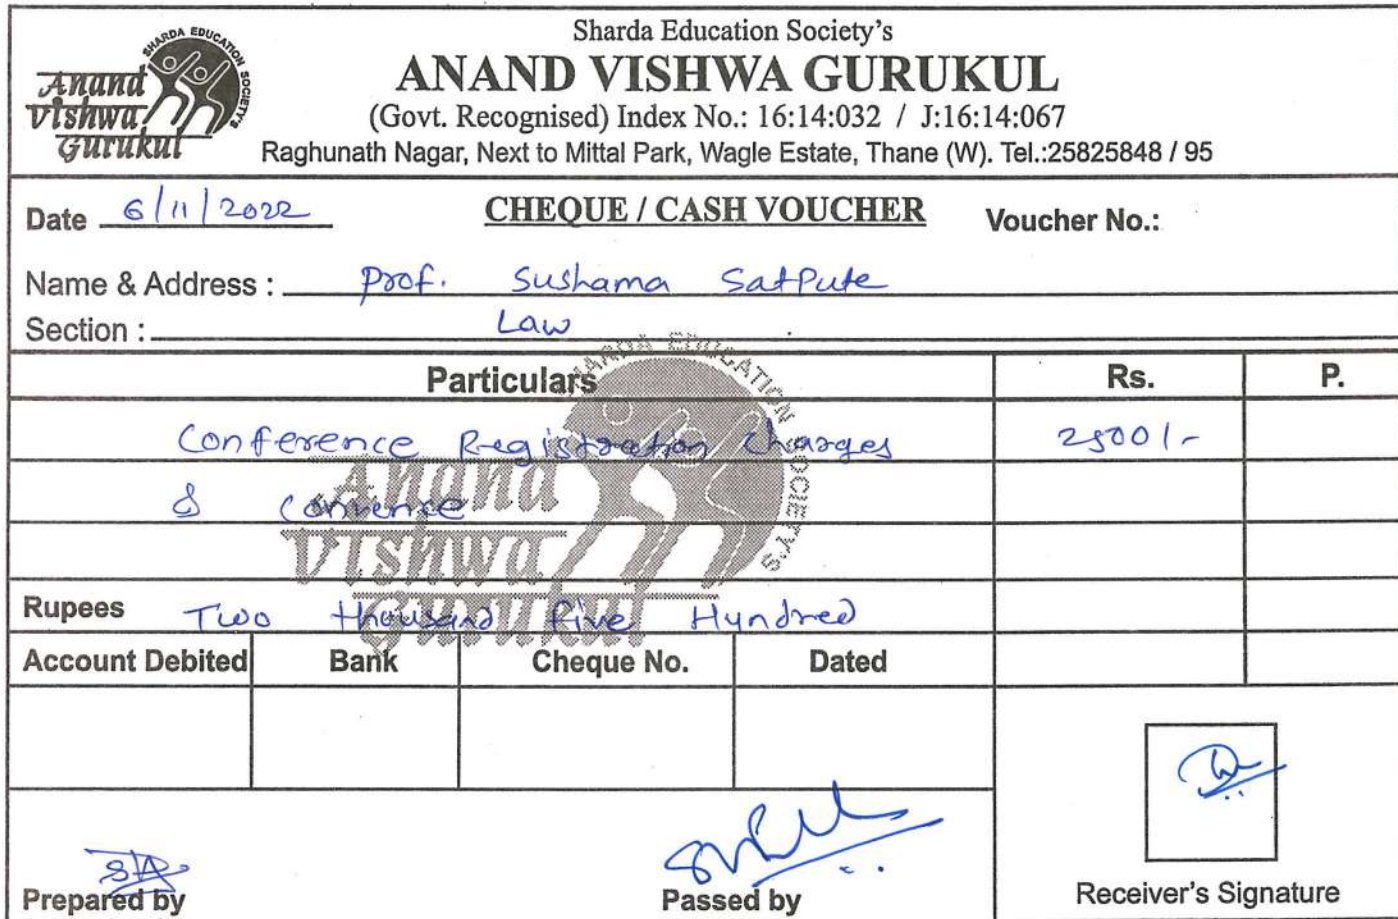 SHARDA EDUCATION SOCIETY'S
Anand
Vishwa
Gurukul
Sharda Education Society's
ANAND VISHWA GURUKUL
(Govt. Recognised) Index No.: 16:14:032 / J:16:14:067
Raghunath Nagar, Next to Mittal Park, Wagle Estate, Thane (W). Tel.:25825848 / 95
Date 6/11/2022 CHEQUE / CASH VOUCHER Voucher No.:
Name & Address : Prof. Sushama Satpute
Section : Law
SHARDA EDUCATION SOCIETY'S
Particulars Rs. P.
Conference Registration Charges 2500/-
& Convence
Anand
Vishwa
Gurukul
Rupees Two thousand five Hundred
Account Debited Bank Cheque No. Dated
Prepared by Passed by Receiver's Signature